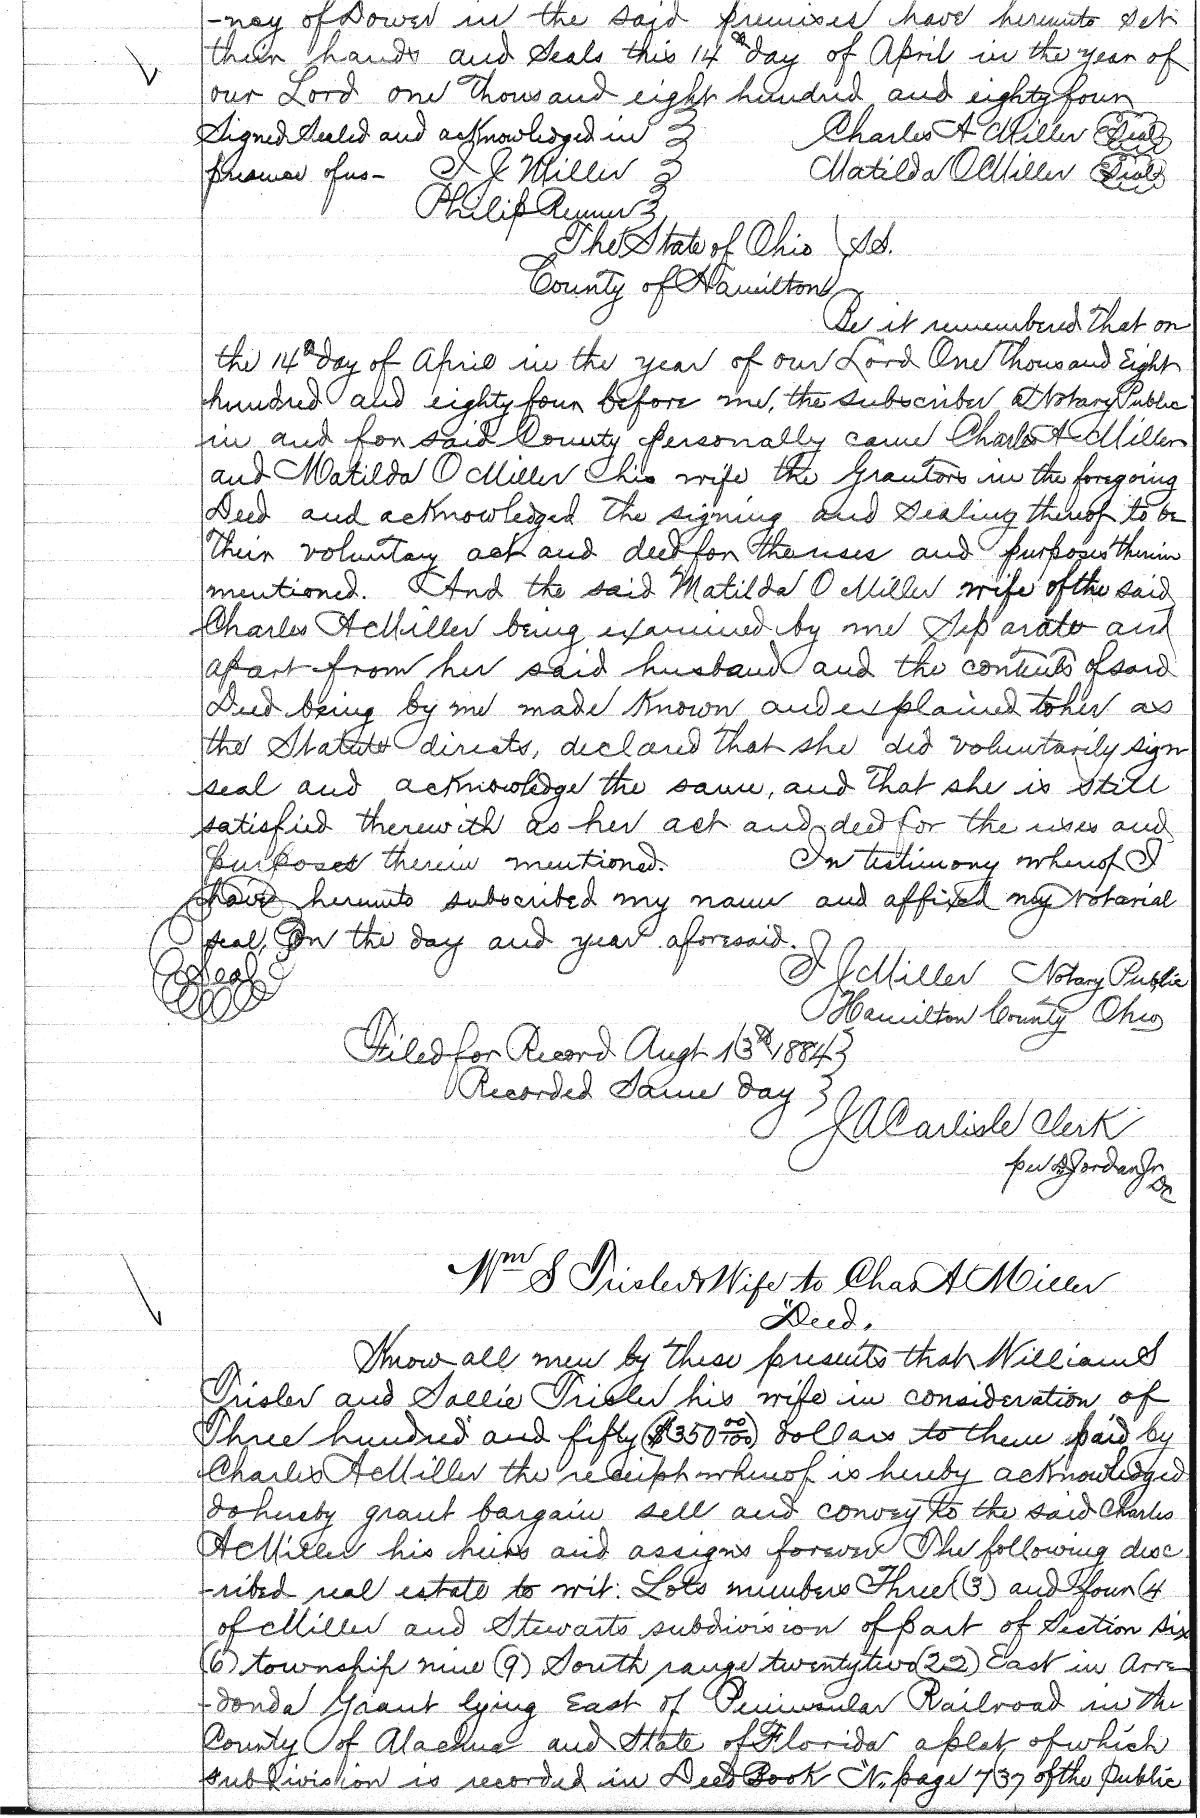 -ncy of Dower in the said premises have hereunto set
their hands and Seals this 14th day of April in the year of
our Lord one thousand eight hundred and eighty four
Signed Sealed and acknowledged in } Charles A Miller (Seal)
presence of us - I J Miller } Matilda O Miller (Seal)
Philip Renner }
The State of Ohio } S.S.
County of Hamilton }
Be it remembered that on
the 14th day of April in the year of our Lord One Thousand Eight
hundred and eighty four before me, the subscriber a Notary Public
in and for said County personally came Charles A Miller
and Matilda O Miller his wife the Grantors in the foregoing
Deed and acknowledged the signing and Sealing thereof to be
their voluntary act and deed for the uses and purposes therein
mentioned. And the said Matilda O Miller wife of the said
Charles A Miller being examined by me Separate and
apart from her said husband and the contents of said
Deed being by me made Known and explained to her as
the Statute directs, declared that she did voluntarily sign
seal and acknowledge the same, and that she is still
satisfied therewith as her act and deed for the uses and
purposes therein mentioned. In testimony whereof I
have hereunto subscribed my name and affixed my Notarial
seal, On the day and year aforesaid.
(Seal) I J Miller Notary Public
Hamilton County Ohio
Filed for Record Augt 13th 1884 }
Recorded Same day }
J A Carlisle Clerk
per Jordan Jr
DC
Wm S Trisler & Wife to Chas A Miller
"Deed.
Know all men by these presents that William S
Trisler and Sallie Trisler his wife in consideration of
Three hundred and fifty ($350 00/100) dollars to them paid by
Charles A Miller the receipt whereof is hereby acknowledged
do hereby grant bargain sell and convey to the said Charles
A Miller his heirs and assigns forever The following desc
-ribed real estate to wit: Lots numbers Three (3) and four (4
of Miller and Stewarts subdivision of part of Section six
(6) township nine (9) South range twenty two (22) East in Arre
-donda Grant lying East of Peninsular Railroad in the
County of Alachua and State of Florida a plat of which
subdivision is recorded in Deed Book "N" page 737 of the Public